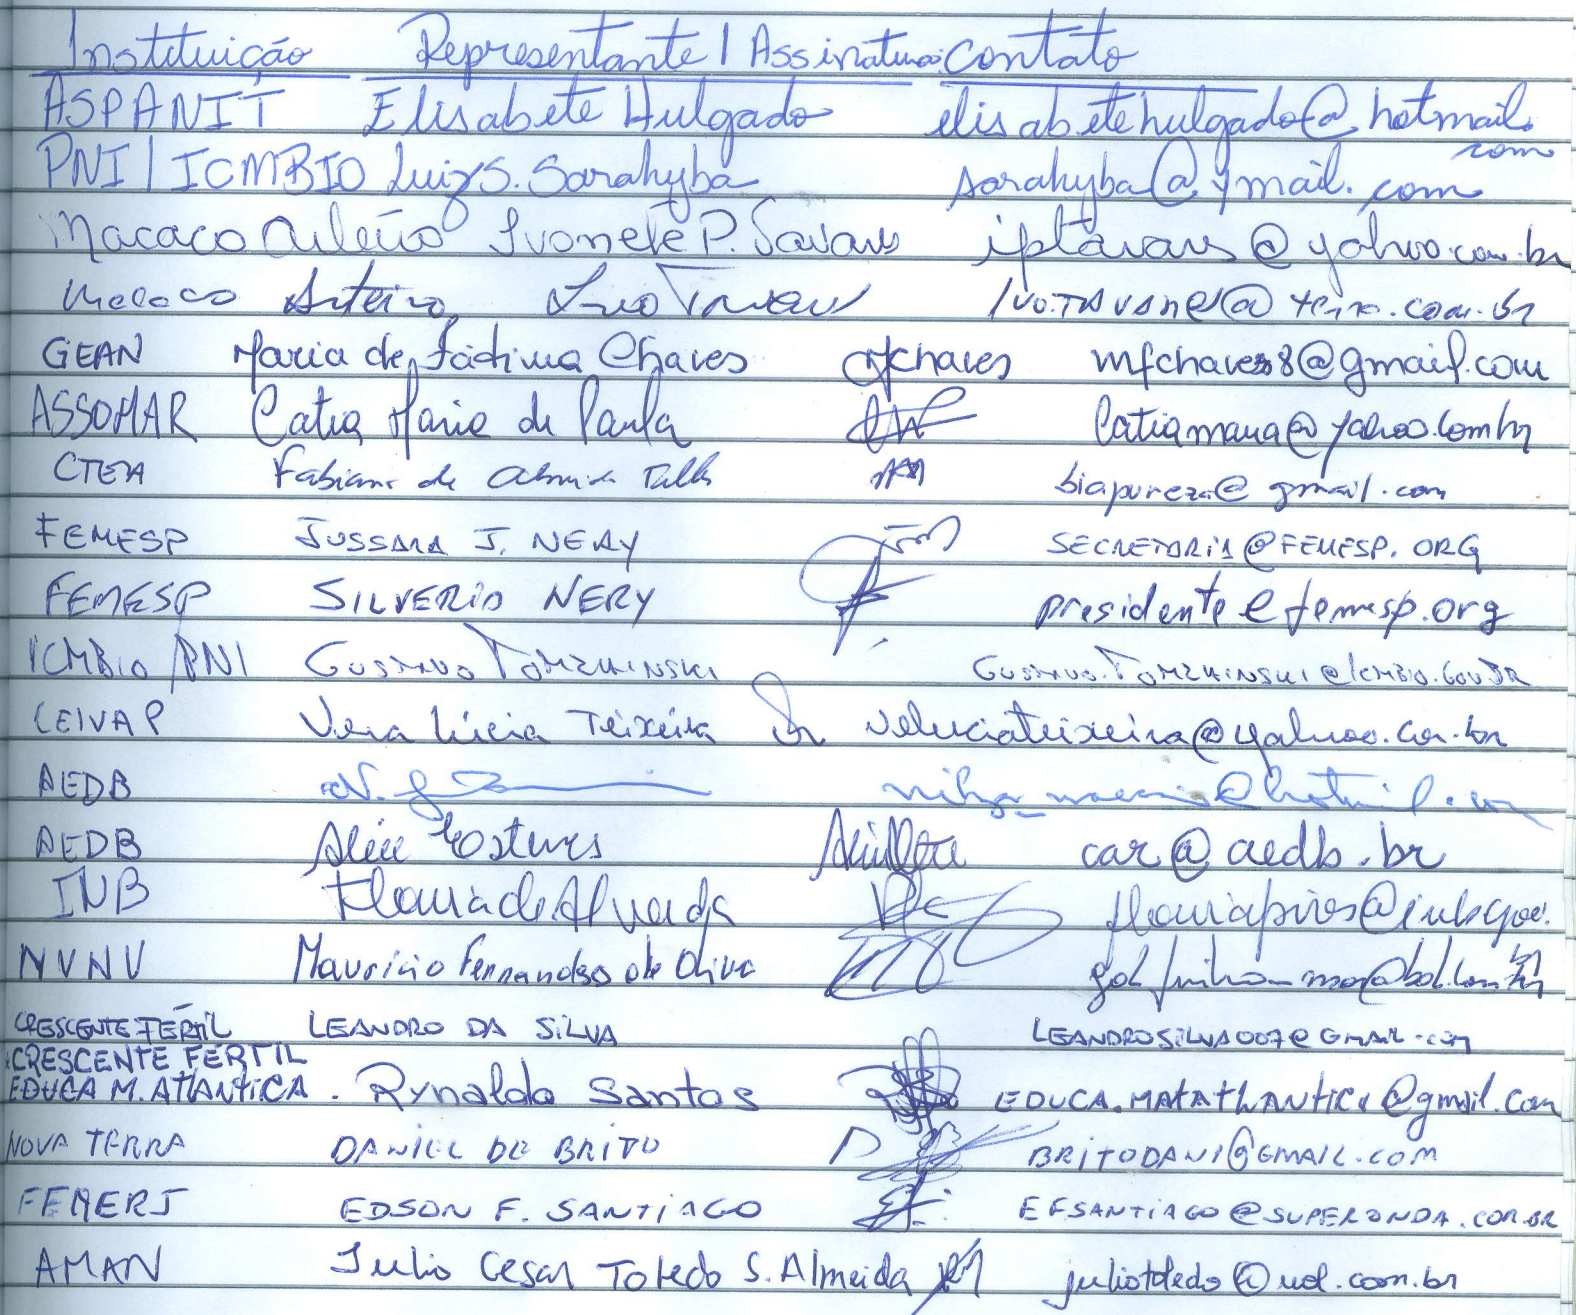 Instituição Representante / Assinatura Contato
ASPANIT Elisabete Hulgado elisabetehulgado@hotmail.
com
PNI / ICMBIO Luiz S. Sarahyba sarahyba@gmail.com
Macaco Arteiro Ivonete P. Tavares iptavares@yahoo.com.br
Macaco Arteiro Ivo Tavares ivo.tavares@terra.com.br
GEAN Maria de Fátima Chaves mfchaves mfchaves8@gmail.com
ASSOMAR Catia Maria de Paula catiamaria@yahoo.com.br
CTEA Fabiane de biapureza@gmail.com
FEMESP JUSSARA J. NERY SECRETARIA@FEMESP.ORG
FEMESP SILVERIO NERY presidente@femesp.org
ICMBio/PNI GUSTAVO TOMZHINSKI GUSTAVO.TOMZHINSKI@ICMBIO.GOV.BR
CEIVAP Vera Lúcia Teixeira veluciateixeira@yahoo.com.br
AEDB
AEDB Alice car@aedb.br
INB Flavia de Almeida flaviapires@inb.gov.
br
NVNV Mauricio Fernandes de Oliva
CRESCENTE FÉRTIL LEANDRO DA SILVA LEANDROSILVA007@GMAIL.COM
CRESCENTE FÉRTIL
EDUCA M. ATLANTICA. Rynaldo Santos EDUCA.MATATLANTICA@gmail.com
NOVA TERRA DANIEL DE BRITO BRITODANI@GMAIL.COM
FEMERJ EDSON F. SANTIAGO EFSANTIAGO@SUPERONDA.COM.BR
AMAN Julio Cesar Toledo S. Almeida juliotoledo@uol.com.br